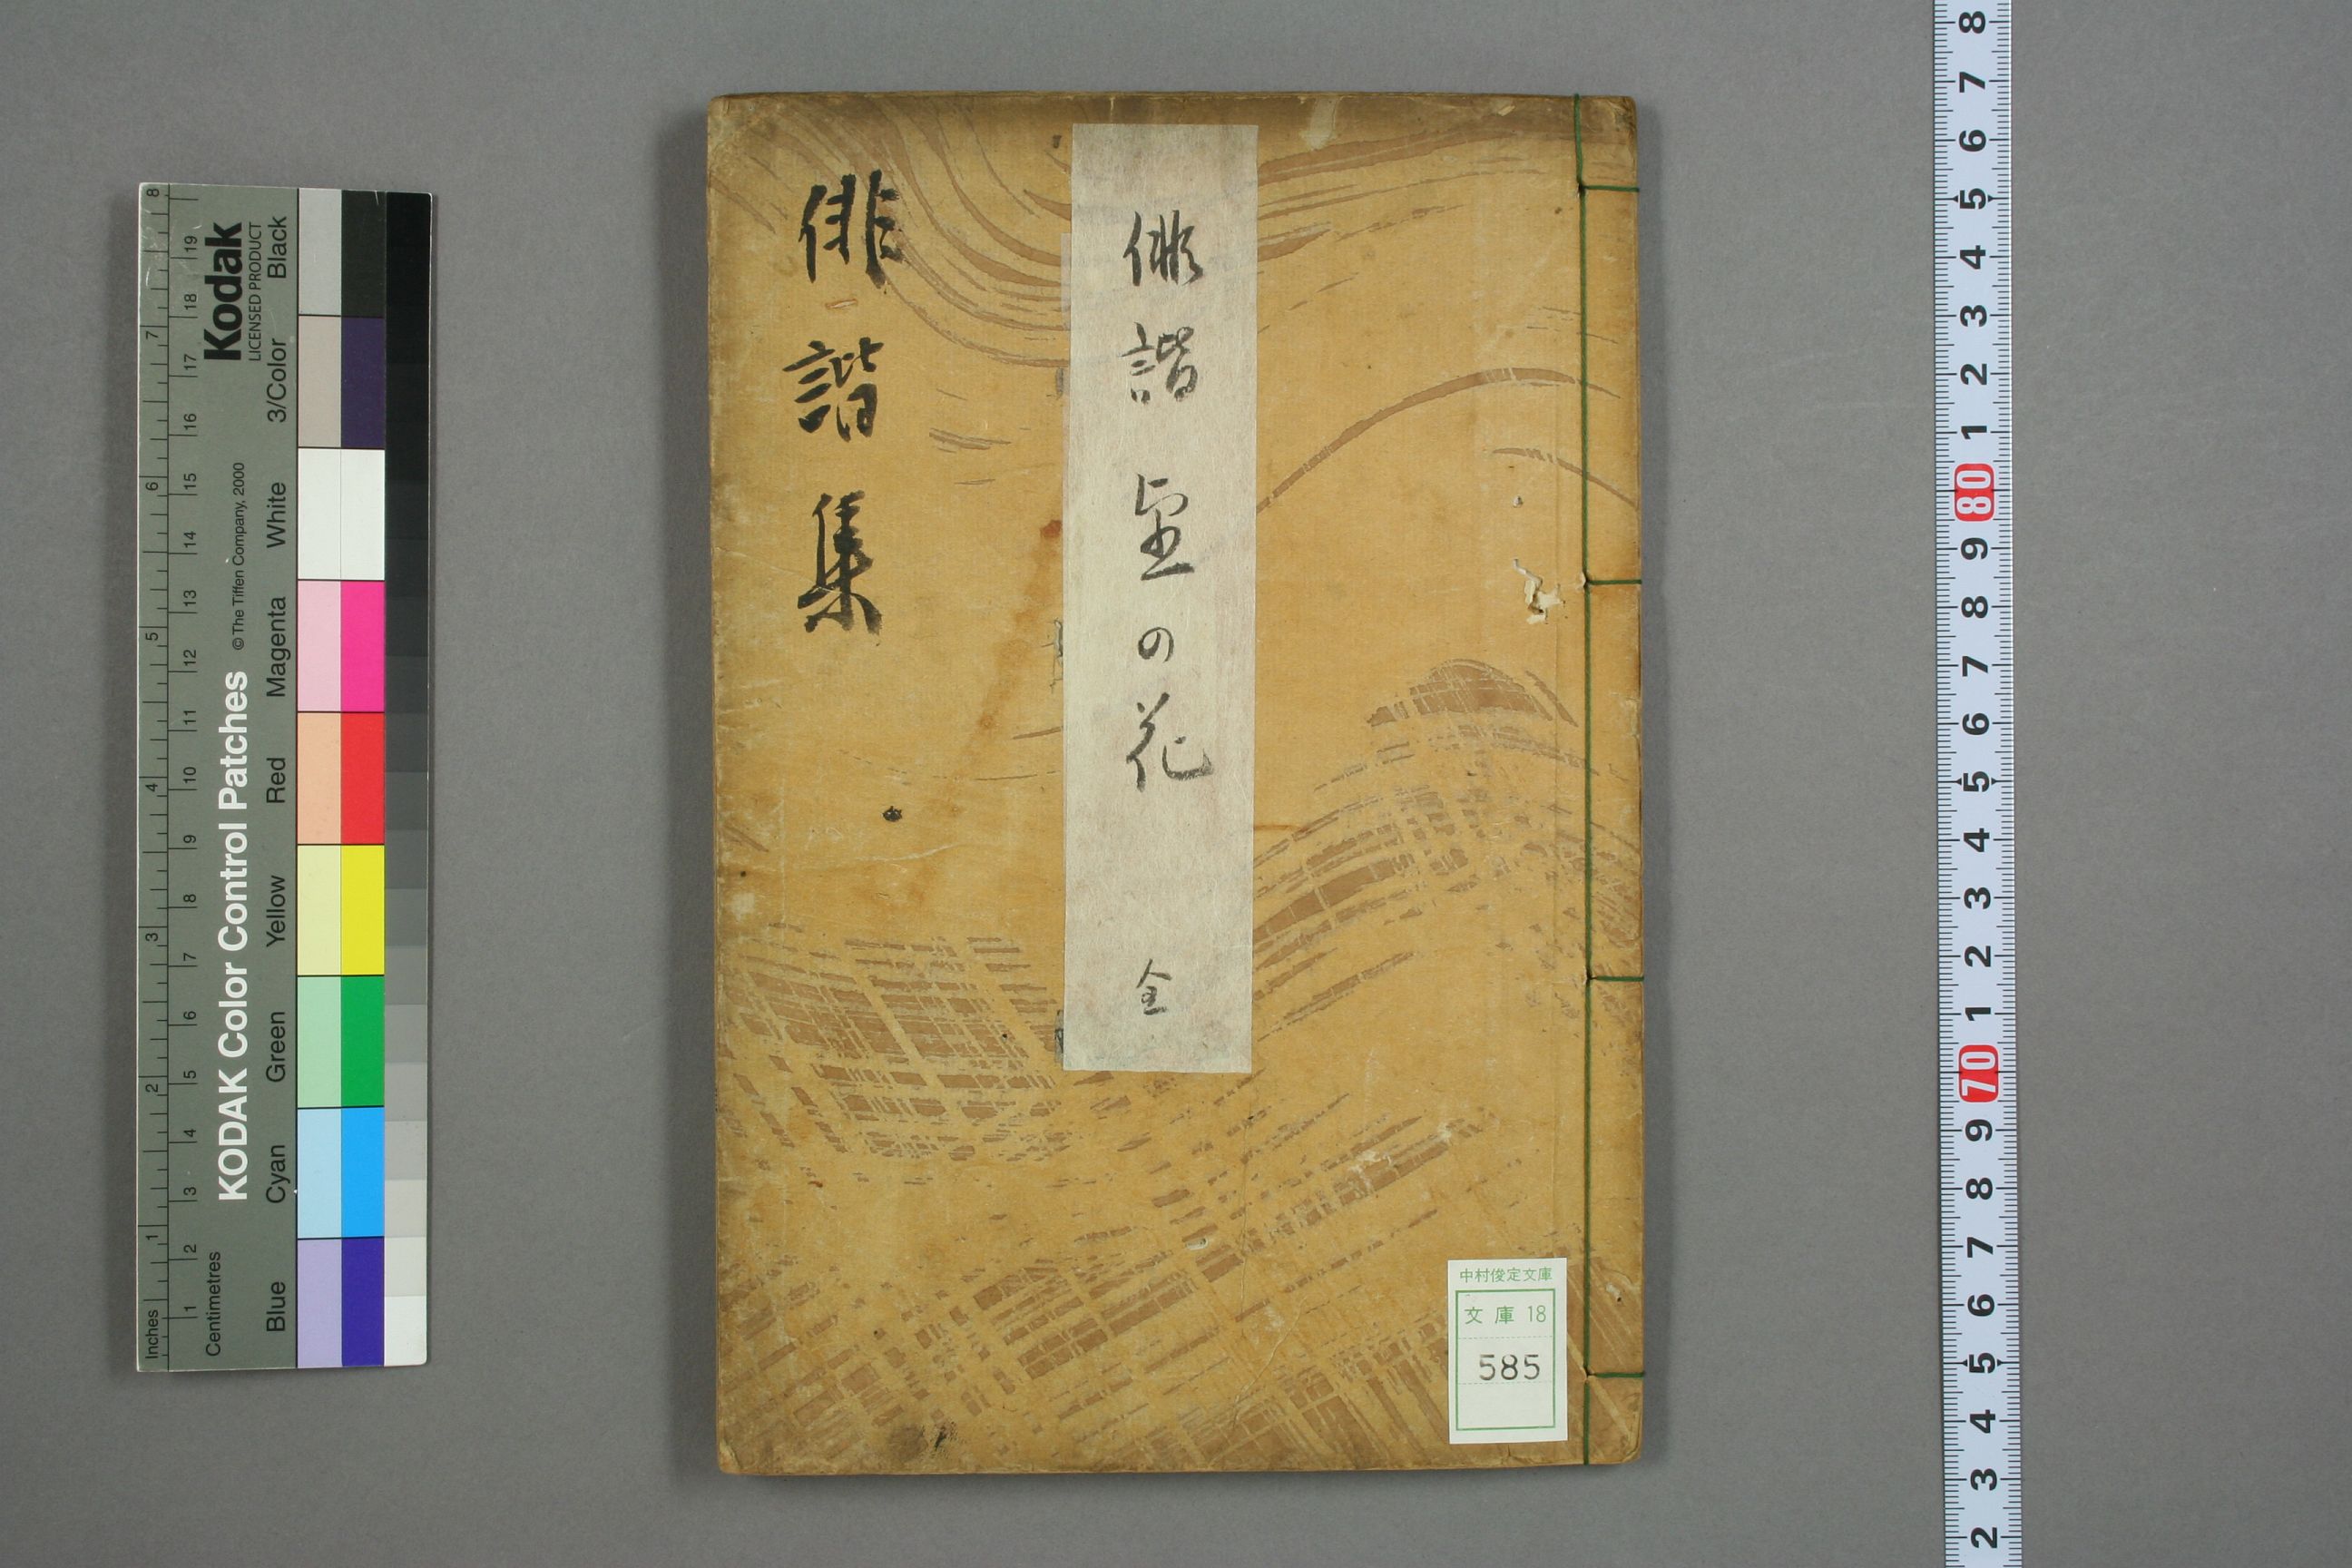 俳諧集
俳諧 の花 全
中村俊定文庫
文庫 18
585
Kodak
LICENSED PRODUCT
KODAK Color Control Patches
©The Tiffen Company, 2000
Blue Cyan Green Yellow Red Magenta White 3/Color Black
Inches 1 2 3 4 5 6 7 8
Centimetres 1 2 3 4 5 6 7 8 9 10 11 12 13 14 15 16 17 18 19
8 7 6 5 4 3 2 1 80 9 8 7 6 5 4 3 2 1 70 9 8 7 6 5 4 3 2